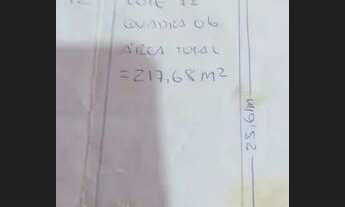 LOTE 12
QUADRA 06
ÁREA TOTAL
=217,68 M²
25,61M